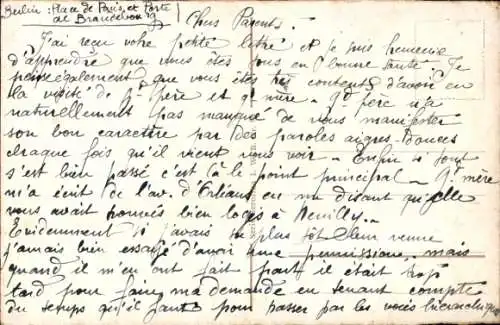 Berlin : Place de Paris, et Porte
de Brandebourg
Chers Parents.
J'ai reçu votre petite lettre et je suis heureux
d'apprendre que vous êtes tous en bonne santé. Je
pense également que vous êtes très contents d'avoir eu
la visite de gd-père et gd-mère. Gd père n'a
naturellement pas manqué de vous manifester
son bon caractère par des paroles aigres-douces
chaque fois qu'il vient vous voir. Enfin si tout
s'est bien passé c'est là le point principal. Gd mère
m'a écrit de l'av. d'Orléans en me disant qu'elle
vous avait trouvés bien logés à Neuilly..
Evidemment si j'avais su plus tôt leur venue
j'amais bien essayé d'avoir une permission, mais
quand il m'en ont fait part il était trop
tard pour faire ma demande en tenant compte
du temps qu'il faut pour passer par les voies hiérarchiques